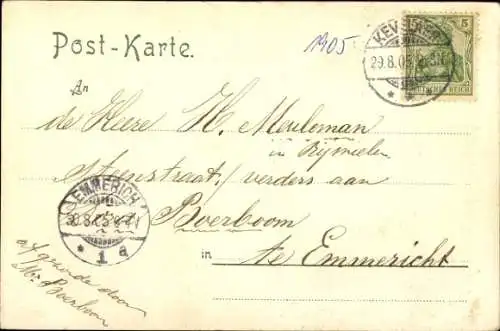 Post-Karte.
1905
KEVELAER
29.8.05
5
DEUTSCHES REICH
An
de Heere H. Meuloman
in Rijmelen
Steenstraat / verders aan
EMMERICH
30.8.05
1 a
Boerboom
in te Emmericht
door
Mr. Boerboom